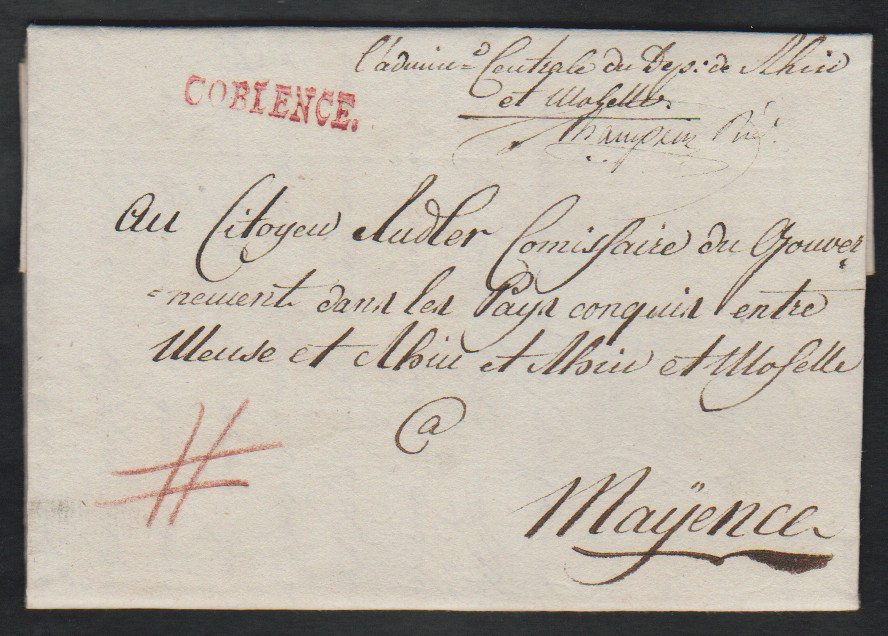 l'admin.ᵒⁿ Centrale du Dep.ᵗ de Rhin
et Moselle.
COBLENCE.
Au Citoyen Rudler Comissaire du Gouver
=nement dans les Pays conquis entre
Meuse et Rhin et Rhin et Moselle
a
Maÿence